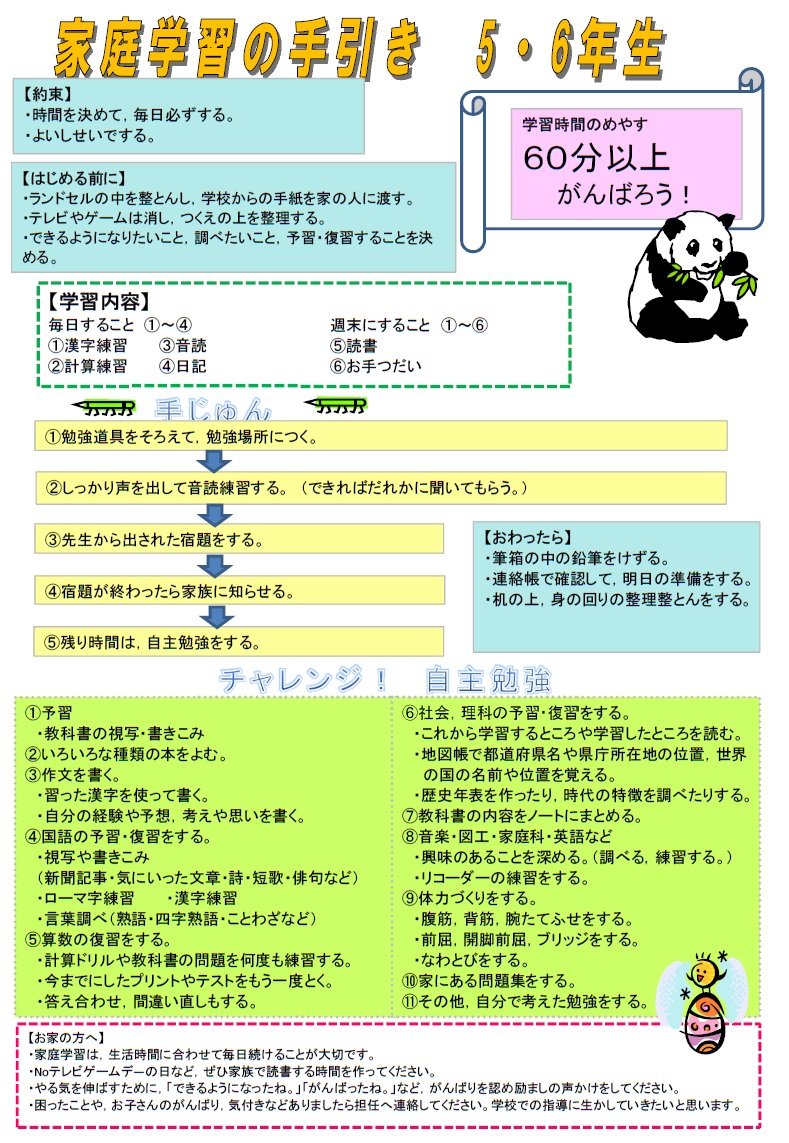 家庭学習の手引き　５・６年生
【約束】
・時間を決めて，毎日必ずする。
・よいしせいでする。
学習時間のめやす
６０分以上
がんばろう！
【はじめる前に】
・ランドセルの中を整とんし，学校からの手紙を家の人に渡す。
・テレビやゲームは消し，つくえの上を整理する。
・できるようになりたいこと，調べたいこと，予習・復習することを決
める。
【学習内容】
毎日すること　①～④　　週末にすること　①～⑥
①漢字練習　　③音読　　⑤読書
②計算練習　　④日記　　⑥お手つだい
手じゅん
①勉強道具をそろえて，勉強場所につく。
②しっかり声を出して音読練習する。（できればだれかに聞いてもらう。）
③先生から出された宿題をする。
④宿題が終わったら家族に知らせる。
⑤残り時間は，自主勉強をする。
【おわったら】
・筆箱の中の鉛筆をけずる。
・連絡帳で確認して，明日の準備をする。
・机の上，身の回りの整理整とんをする。
チャレンジ！　自主勉強
①予習
・教科書の視写・書きこみ
②いろいろな種類の本をよむ。
③作文を書く。
・習った漢字を使って書く。
・自分の経験や予想，考えや思いを書く。
④国語の予習・復習をする。
・視写や書きこみ
（新聞記事・気にいった文章・詩・短歌・俳句など）
・ローマ字練習　　・漢字練習
・言葉調べ（熟語・四字熟語・ことわざなど）
⑤算数の復習をする。
・計算ドリルや教科書の問題を何度も練習する。
・今までにしたプリントやテストをもう一度とく。
・答え合わせ，間違い直しもする。
⑥社会，理科の予習・復習をする。
・これから学習するところや学習したところを読む。
・地図帳で都道府県名や県庁所在地の位置，世界
の国の名前や位置を覚える。
・歴史年表を作ったり，時代の特徴を調べたりする。
⑦教科書の内容をノートにまとめる。
⑧音楽・図工・家庭科・英語など
・興味のあることを深める。（調べる，練習する。）
・リコーダーの練習をする。
⑨体力づくりをする。
・腹筋，背筋，腕たてふせをする。
・前屈，開脚前屈，ブリッジをする。
・なわとびをする。
⑩家にある問題集をする。
⑪その他，自分で考えた勉強をする。
【お家の方へ】
・家庭学習は，生活時間に合わせて毎日続けることが大切です。
・Noテレビゲームデーの日など，ぜひ家族で読書する時間を作ってください。
・やる気を伸ばすために，「できるようになったね。」「がんばったね。」など，がんばりを認め励ましの声かけをしてください。
・困ったことや，お子さんのがんばり，気付きなどありましたら担任へ連絡してください。学校での指導に生かしていきたいと思います。